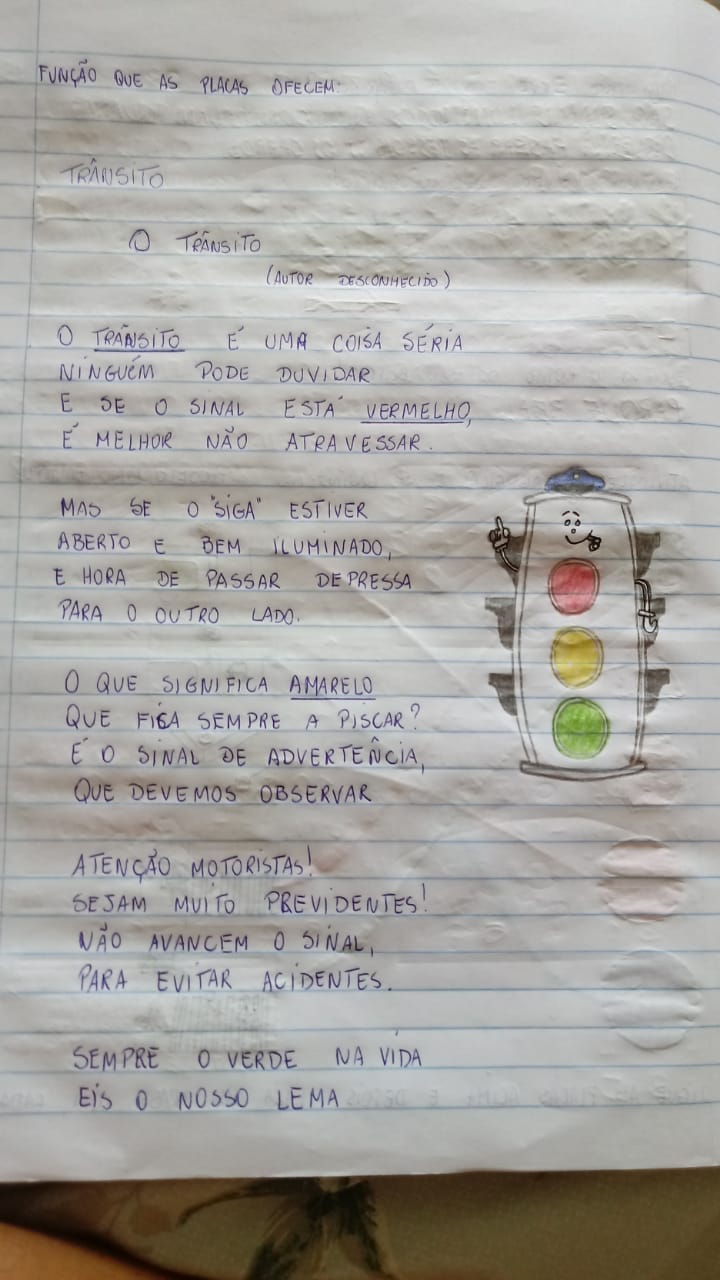 FUNÇÃO QUE AS PLACAS OFECEM:
TRÂNSITO
O TRÂNSITO
(AUTOR DESCONHECIDO)
O TRÂNSITO É UMA COISA SÉRIA
NINGUÉM PODE DUVIDAR
E SE O SINAL ESTÁ VERMELHO,
É MELHOR NÃO ATRAVESSAR.
MAS SE O "SIGA" ESTIVER
ABERTO E BEM ILUMINADO,
E HORA DE PASSAR DEPRESSA
PARA O OUTRO LADO.
O QUE SIGNIFICA AMARELO
QUE FICA SEMPRE A PISCAR?
É O SINAL DE ADVERTÊNCIA,
QUE DEVEMOS OBSERVAR
ATENÇÃO MOTORISTAS!
SEJAM MUITO PREVIDENTES!
NÃO AVANCEM O SINAL,
PARA EVITAR ACIDENTES.
SEMPRE O VERDE NA VIDA
EIS O NOSSO LEMA